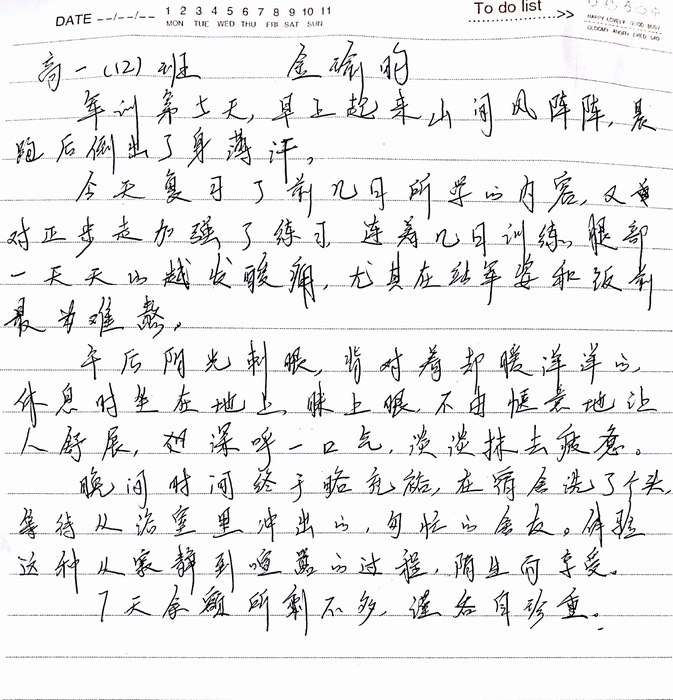 DATE --/--/--
1 2 3 4 5 6 7 8 9 10 11
MON TUE WED THU FRI SAT SUN
To do list ............>>
高一(12)班 金瑜昀
军训第七天,早上起来山间风阵阵,晨
跑后倒出了身薄汗。
今天复习了前几日所学的内容,又
对正步走加强了练习,连着几日训练,腿部
一天天的越发酸痛,尤其在站军姿和饭前
最为难熬。
午后阳光刺眼,背对着却暖洋洋的,
休息时坐在地上,眯上眼,不由惬意地让
人舒展,深呼一口气,淡淡抹去疲惫。
晚间时间终于略充裕,在宿舍洗了个头,
等待从浴室里冲出的,匆忙的舍友。体验
这种从寂静到喧嚣的过程,陌生而享受。
7天余额所剩不多,谨各自珍重。